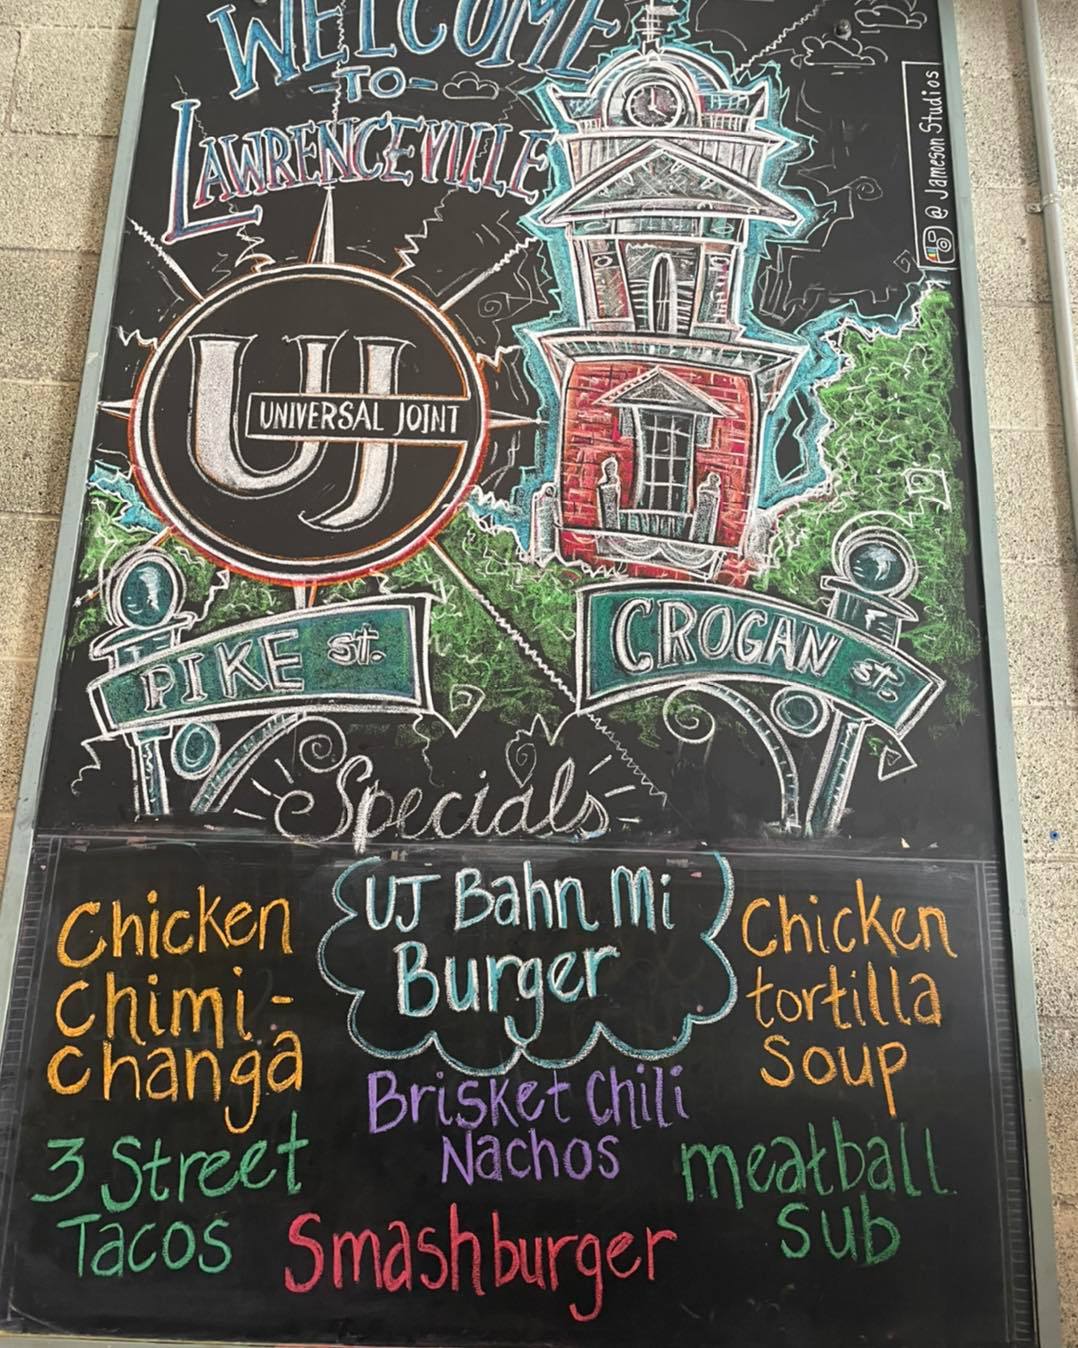 WELCOME
-TO-
LAWRENCEVILLE
@ Jameson Studios
UJ
UNIVERSAL JOINT
PIKE St.
CROGAN St.
Specials
Chicken
Chimi-
Changa
UJ Bahn Mi
Burger
Chicken
tortilla
Soup
Brisket Chili
Nachos
3 Street
Tacos
meatball
Sub
Smashburger